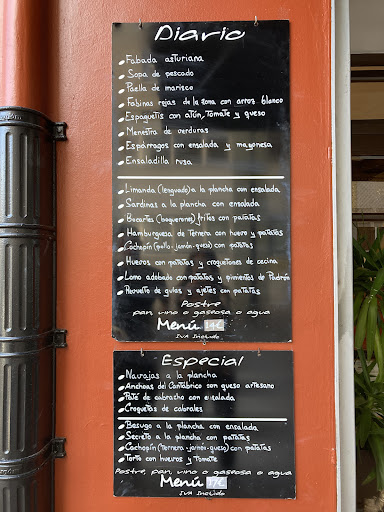 Diario
Fabada asturiana
Sopa de pescado
Paella de marisco
Fabinas rojas de la zona con arroz blanco
Espaguetis con atún, tomate y queso
Menestra de verduras
Espárragos con ensalada y mayonesa
Ensaladilla rusa
Limanda (lenguado) a la plancha con ensalada
Sardinas a la plancha con ensalada
Bocartes (boquerones) fritos con patatas
Hamburguesa de Ternera con huevo y patatas
Cachopín (pollo-jamón-queso) con patatas
Huevos con patatas y croquetones de cecina
Lomo adobado con patatas y pimientos de Padrón
Revuelto de gulas y ajetes con patatas
Postre
pan, vino o gaseosa o agua
Menú 14€
IVA Incluido
Especial
Navajas a la plancha
Anchoas del Cantábrico con queso artesano
Paté de cabracho con ensalada
Croquetas de cabrales
Besugo a la plancha con ensalada
Secreto a la plancha con patatas
Cachopín (Ternera-jamón-queso) con patatas
Torto con huevos y Tomate
Postre, pan, vino o gaseosa o agua
Menú
IVA Incluido